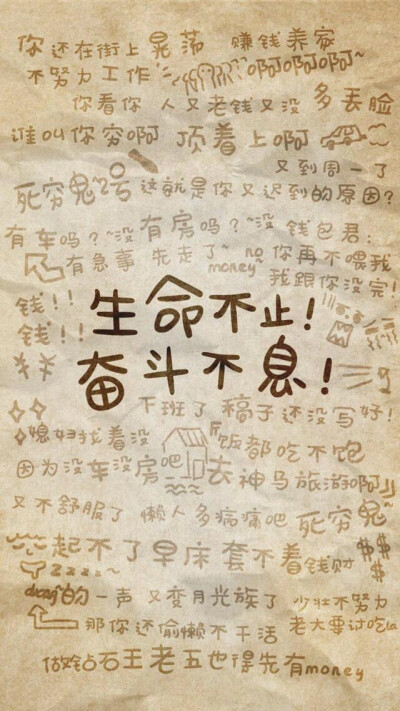 你还在街上晃荡 赚钱养家
不努力工作 啊啊啊啊~
你看你 人又老钱又没 多丢脸
谁叫你穷啊 顶着上啊
又到周一了
死穷鬼~2号 这就是你又迟到的原因?
有车吗?~没有房吗?~没 钱包君:
有急事 先走了~ no money 你再不喂我
我跟你没完!
钱!!
钱!!
生命不止!
奋斗不息!
下班了 稿子还没写好!
媳妇找着没 「饭都吃不饱
因为没车没房吧 去神马旅游啊」
又不舒服了 懒人多病痛吧 死穷鬼~
起不了早床套不着钱财 $$ $$
zzzz~
duang的一声 又变月光族了 少壮不努力
那你还偷懒不干活 老大要讨吃la
做钻石王老五也得先有money